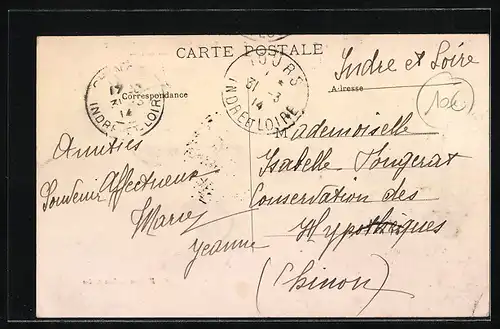 CARTE POSTALE
Correspondance
Adresse
TOURS
31 - 3
14
INDRE & LOIRE
INDRE-ET-LOIRE
14
Indre et Loire
106
Amitiés
Souvenir Affectueux
Marie
Jeanne
Mademoiselle
Isabelle
Conservation des
Hypothèques
(Chinon)